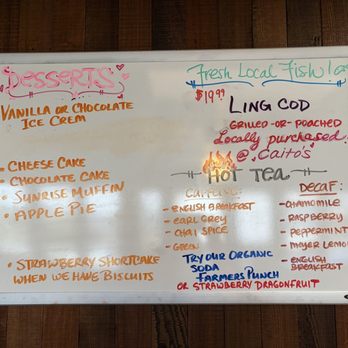 DESSERTS
VANILLA OR CHOCOLATE
ICE CREM
- CHEESE CAKE
- CHOCOLATE CAKE
- SUNRISE MUFFIN
- APPLE PIE
- STRAWBERRY SHORTCAKE
WHEN WE HAVE BISCUITS
Fresh Local Fish!
$19.99
LING COD
GRILLED-OR-POACHED
Locally purchased
@ Caito's
HOT TEA
CAFFEINE:
- ENGLISH BREAKFAST
- EARL GREY
- CHAI SPICE
- GREEN
DECAF:
- CHAMOMILE
- RASPBERRY
- PEPPERMINT
- MAYER LEMON
- ENGLISH
BREAKFAST
TRY OUR ORGANIC
SODA
FARMERS PUNCH
OR STRAWBERRY DRAGONFRUIT